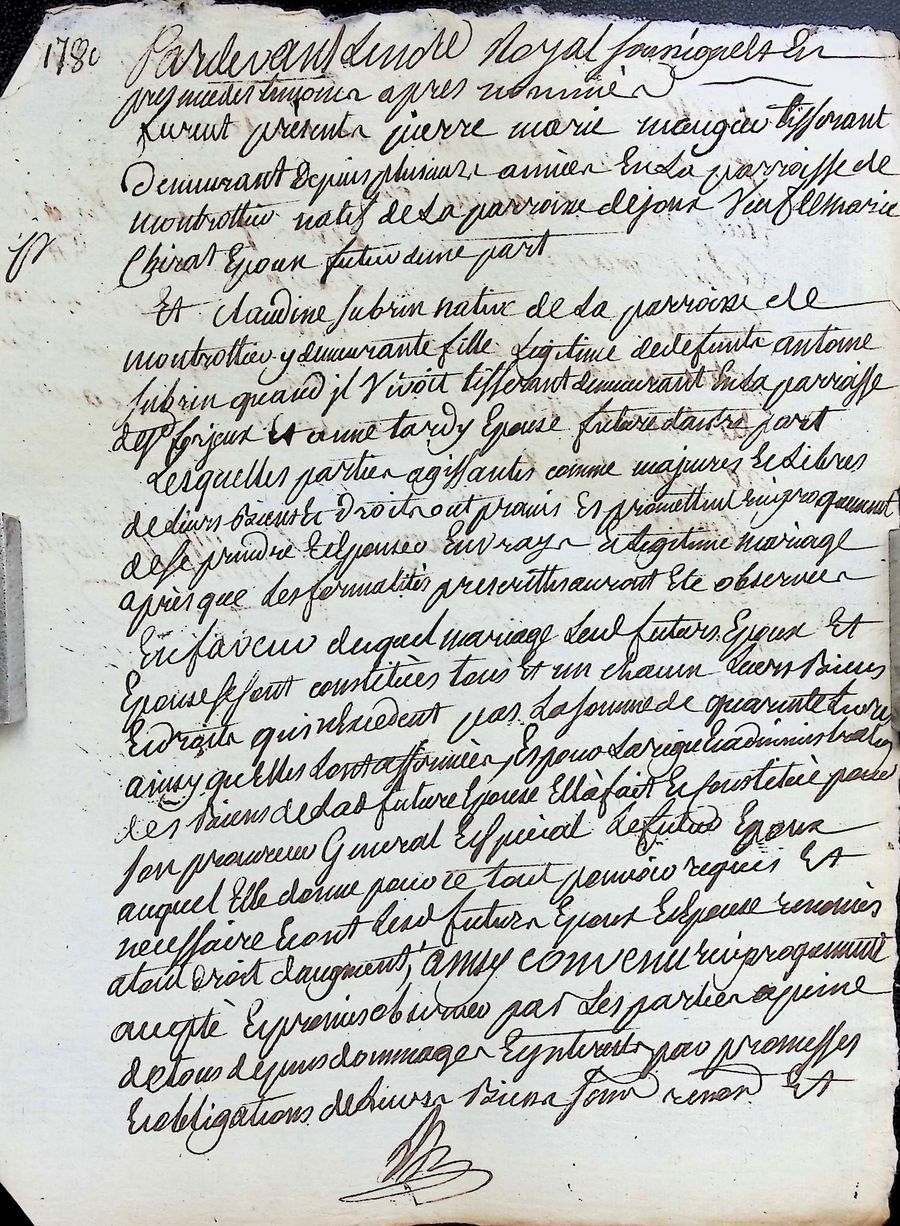 1780
Pardevant Le notre Royal soussigné et En
presence des temoins apres nommés
furent présents pierre marie maugier tisserant
demeurant depuis plusieurs années En La parroisse de
montrottier natif de La parroisse dejoux Veuf de marie
Chirat Epoux futur d'une part
Et Claudine subrin native de La parroisse de
montrottier y demeurante fille Legitime de defunts antoine
subrin quand jl Vivoit tisserant demeurant En La parroisse
de st forjeux Et anne tardy Epouse future d'autre part
Lesquelles parties agissantes comme majeures Et Libres
de Leurs Biens Et Droits ont promis Et promettent reciproquement
de se prendre Et Epouser En vray Et Legitime mariage
après que Les formalités prescrittes auront Eté observées
En faveur duquel mariage Lesd futurs Epoux Et
Epouse se sont constitués tous Et un chacun Leurs Biens
Et droits qui n'excedent pas La somme de quarante Livres
ainsy qu'elles L'ont affirmé, Et pour La regie Et administration
des Biens de Lad future Epouse Elle à fait Et constitué pour
son procureur General Et special Le futur Epoux
auquel Elle donne pour ce tout pouvoir requis Et
necessaire Et ont Lesd futurs Epoux Et Epouse renoncés
a tout Droit d'augment, ainsy convenu reciproquement
accepté Et promis observer par Les parties a peine
de tous depens dommages Et jnterets par promesses
Et obligations de Leurs Biens soum renon Et